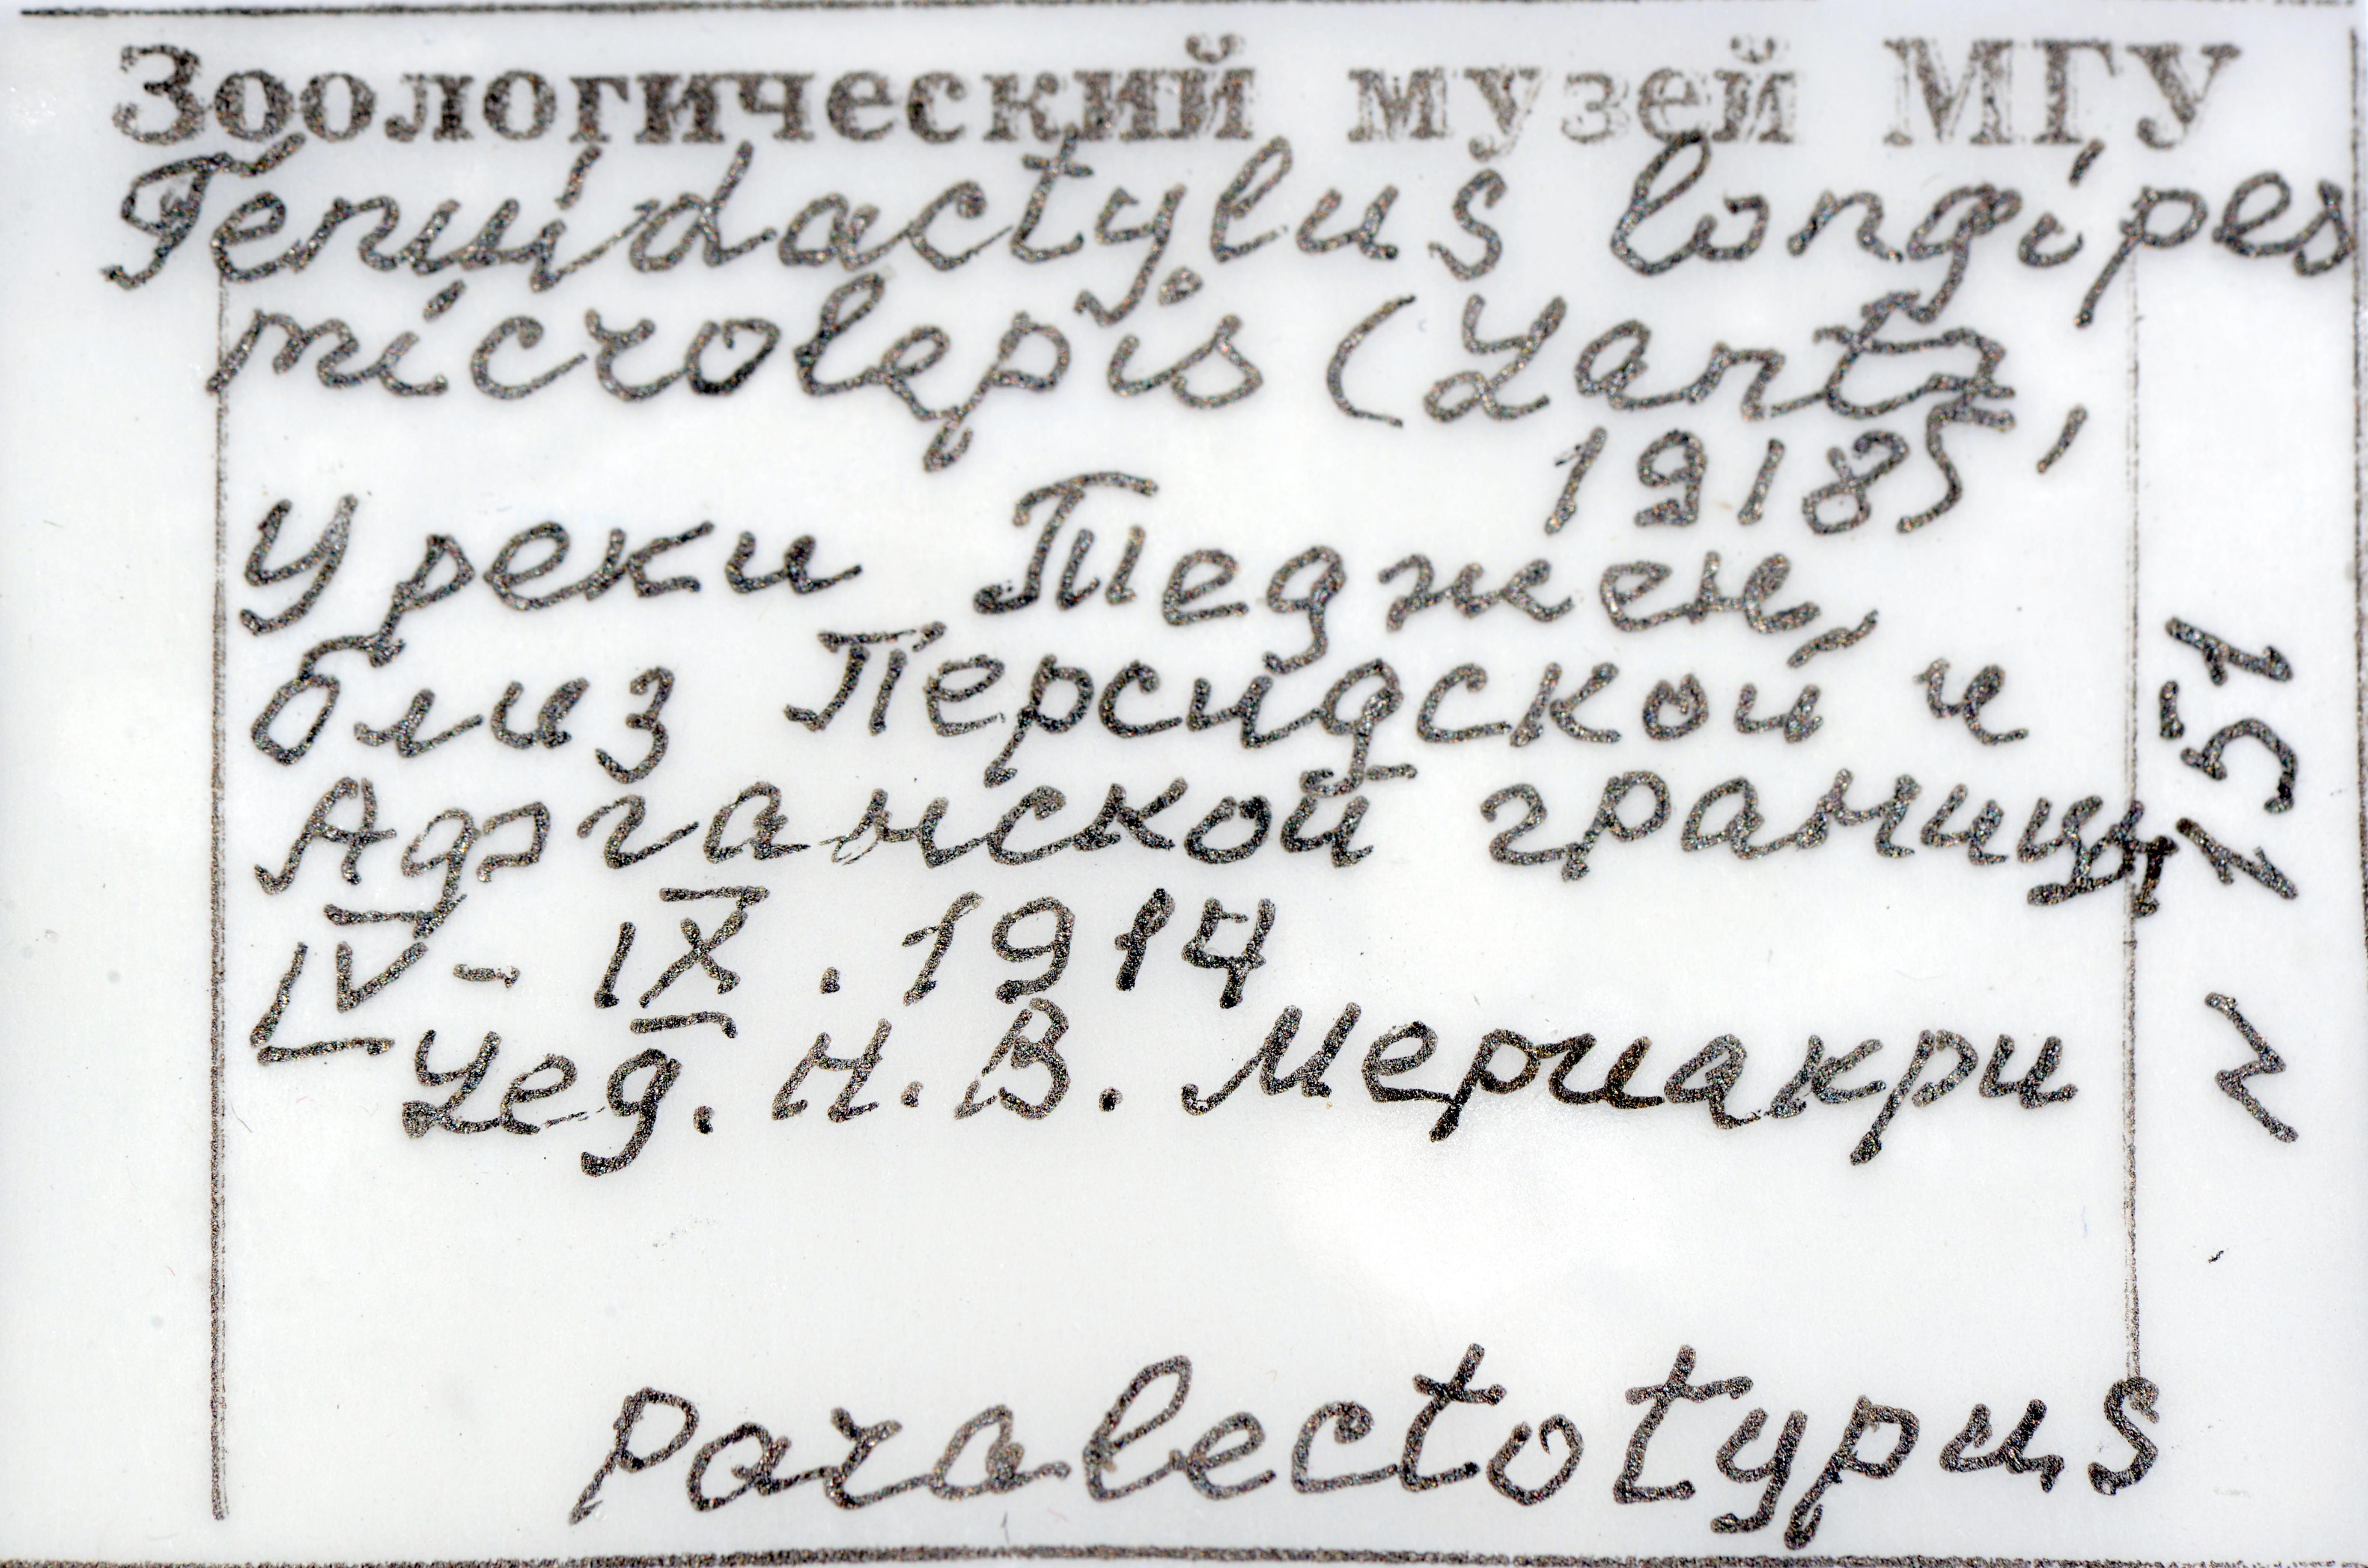 Зоологический музей МГУ
Tenuidactylus longipes
microlepis (Lantz,
1918)
У реки Теджен,
близ Персидской и
Афганской границы
IV - IX . 1914
Leg. Н. В. Мериакри
Paralectotypus
R 1151